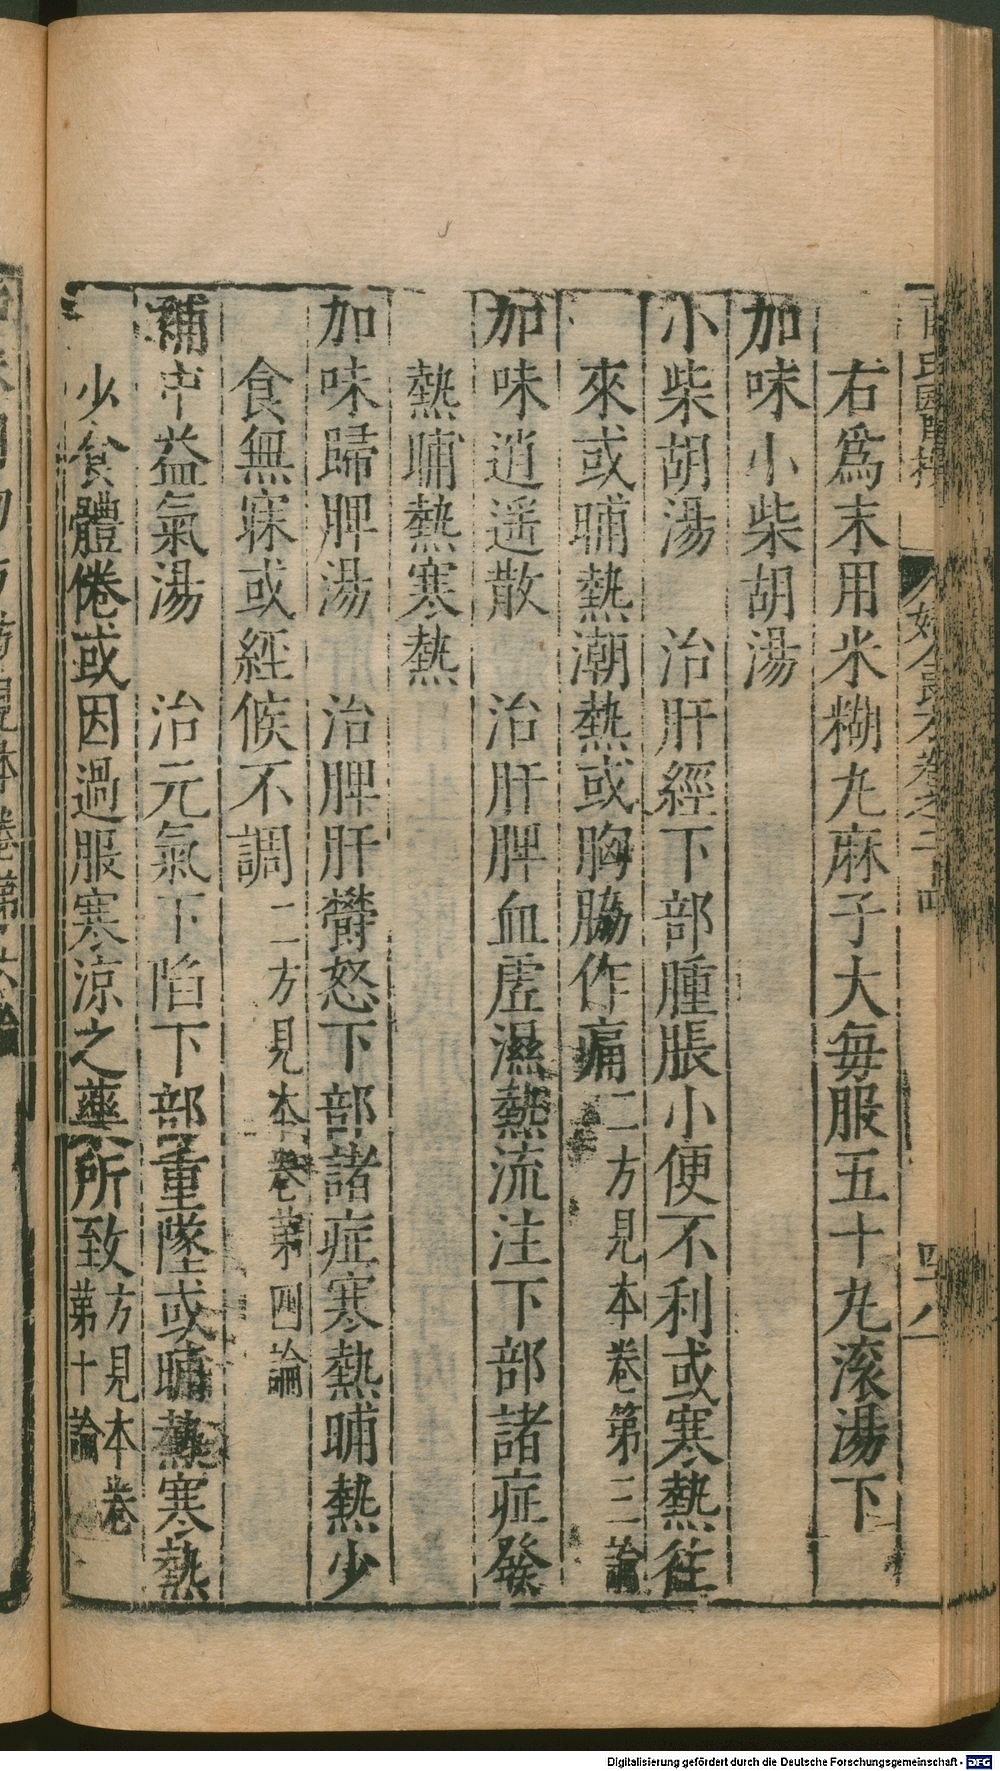 右爲末用米糊丸麻子大每服五十丸滾湯下
加味小柴胡湯
小柴胡湯　治肝經下部腫脹小便不利或寒熱往
來或晡熱潮熱或胸脇作痛二方見本卷第三論
加味逍遥散　治肝脾血虛濕熱流注下部諸症發
熱晡熱寒熱
加味歸脾湯　治脾肝鬱怒下部諸症寒熱晡熱少
食無寐或經候不調二方見本卷第四論
補中益氣湯　治元氣下陷下部重墜或晡熱寒熱
少食體倦或因過服寒涼之藥所致方見本卷第十論
Digitalisierung gefördert durch die Deutsche Forschungsgemeinschaft - DFG